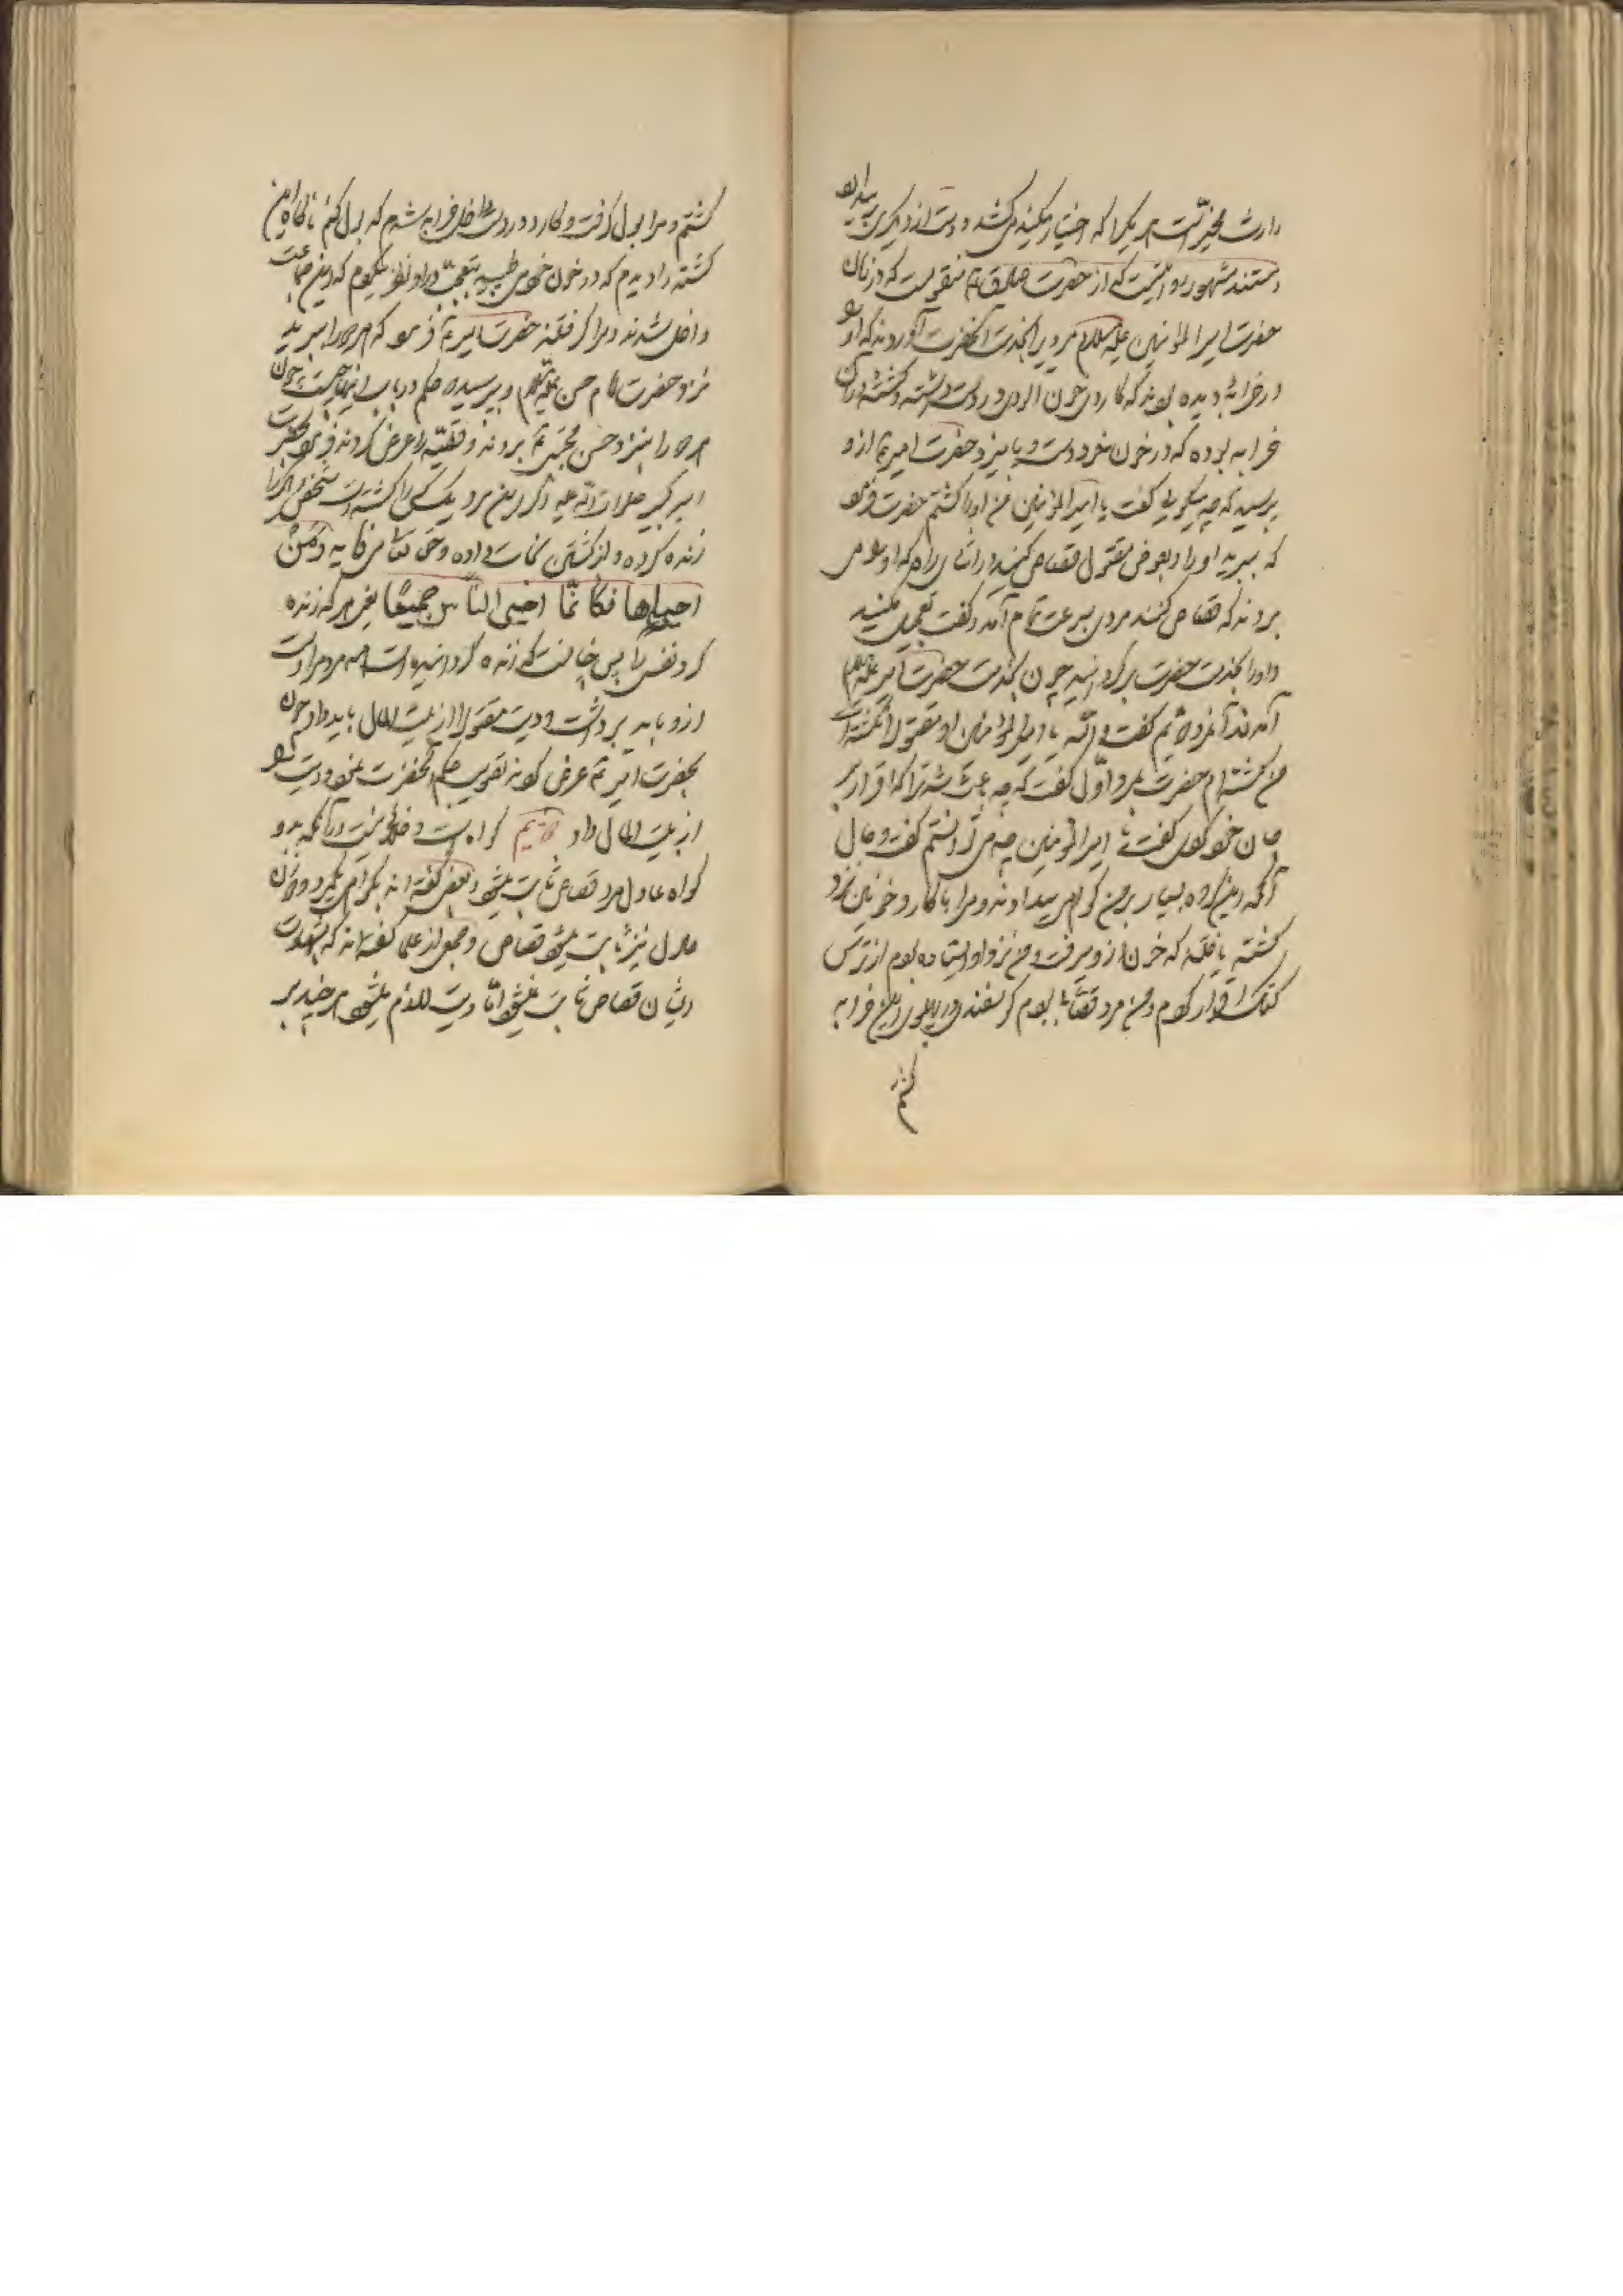 وارث مخیر است هر یک را که اختیار میکند میکشد و دست از دیگری برمیدارد
و مستند مشهور روایتیست که از حضرت صادق ع منقولست که در زمان
حضرت امیر المؤمنین علیه السلام مردی را بخدمت آنحضرت آوردند که او را
در خرابه دیده بودند که کاردی خون آلود در دست داشته و کشتهٔ در آن
خرابه بوده که در خون خود دست و پا میزد حضرت امیر ع از او
پرسید که چه میگوئی گفت یا امیر المؤمنین من او را کشتم حضرت فرمود
که ببرید او را و بعوض مقتول قصاص کنید در اثنای راه که او را می
بردند که قصاص کنند مردی بسرعت تمام آمد و گفت تعجیل مکنید
و او را بخدمت حضرت برگردانید چون بخدمت حضرت امیر علیه السلام
آمدند آنمرد دوم گفت والله یا امیر المؤمنین او مقتول را نکشته است
من کشته‌ام حضرت بمرد اول گفت که چه باعث شد ترا که اقرار بر
جان خود کردی گفت یا امیر المؤمنین چه می‌توانستم گفت و حال
آنکه این گروه بسیار بر من گواهی میدادند و مرا با کارد خونین نزد
کشته یافتند که خون از او میرفت و من نزد او ایستاده بودم از ترس
کتک اقرار کردم و من مرد قصاب بودم گوسفندی در پهلوی این خرابه
کشتم
کشتم و مرا بول گرفت و کارد در دست داخل خرابه شدم که بول کنم ناگاه این
کشته را دیدم که در خون خود می‌طپید بتعجب در او نظر میکردم که این جماعت
داخل شدند و مرا گرفتند حضرت امیر ع فرمود که هر دو را ببرید
نزد حضرت امام حسن علیه السلام و بپرسید که حکم در باب اینها چیست چون
هر دو را بنزد حسن مجتبی ع بردند و قضیه را عرض کردند فرمود بحضرت
امیر کبیر صلوات الله علیه اگر این مرد یک کس را کشته است شخص دیگر را
زنده کرده و از کشتن نجات داده و حق تعالی میفرماید و من
احیاها فکانّما احیی النّاس جمیعًا یعنی هر که زنده
کرد نفسی را پس چنانست که زنده گردانیده است همه مردم را دست
از او باید برداشت و دیت مقتول را از بیت المال باید داد چون
بحضرت امیر ع عرض کردند تصویب حکم آنحضرت نمود و دیت او
از بیت المال داد دویم گواه است و خلافی نیست در آنکه بدو
گواه عادل مرد قصاص ثابت میشود و بعضی گفته‌اند بیکمرد و دو زن
عادل نیز ثابت میشود قصاص و جمعی از علما گفته‌اند که بشهادت
ایشان قصاص ثابت نمیشود امّا دیت لازم میشود هر چند بر